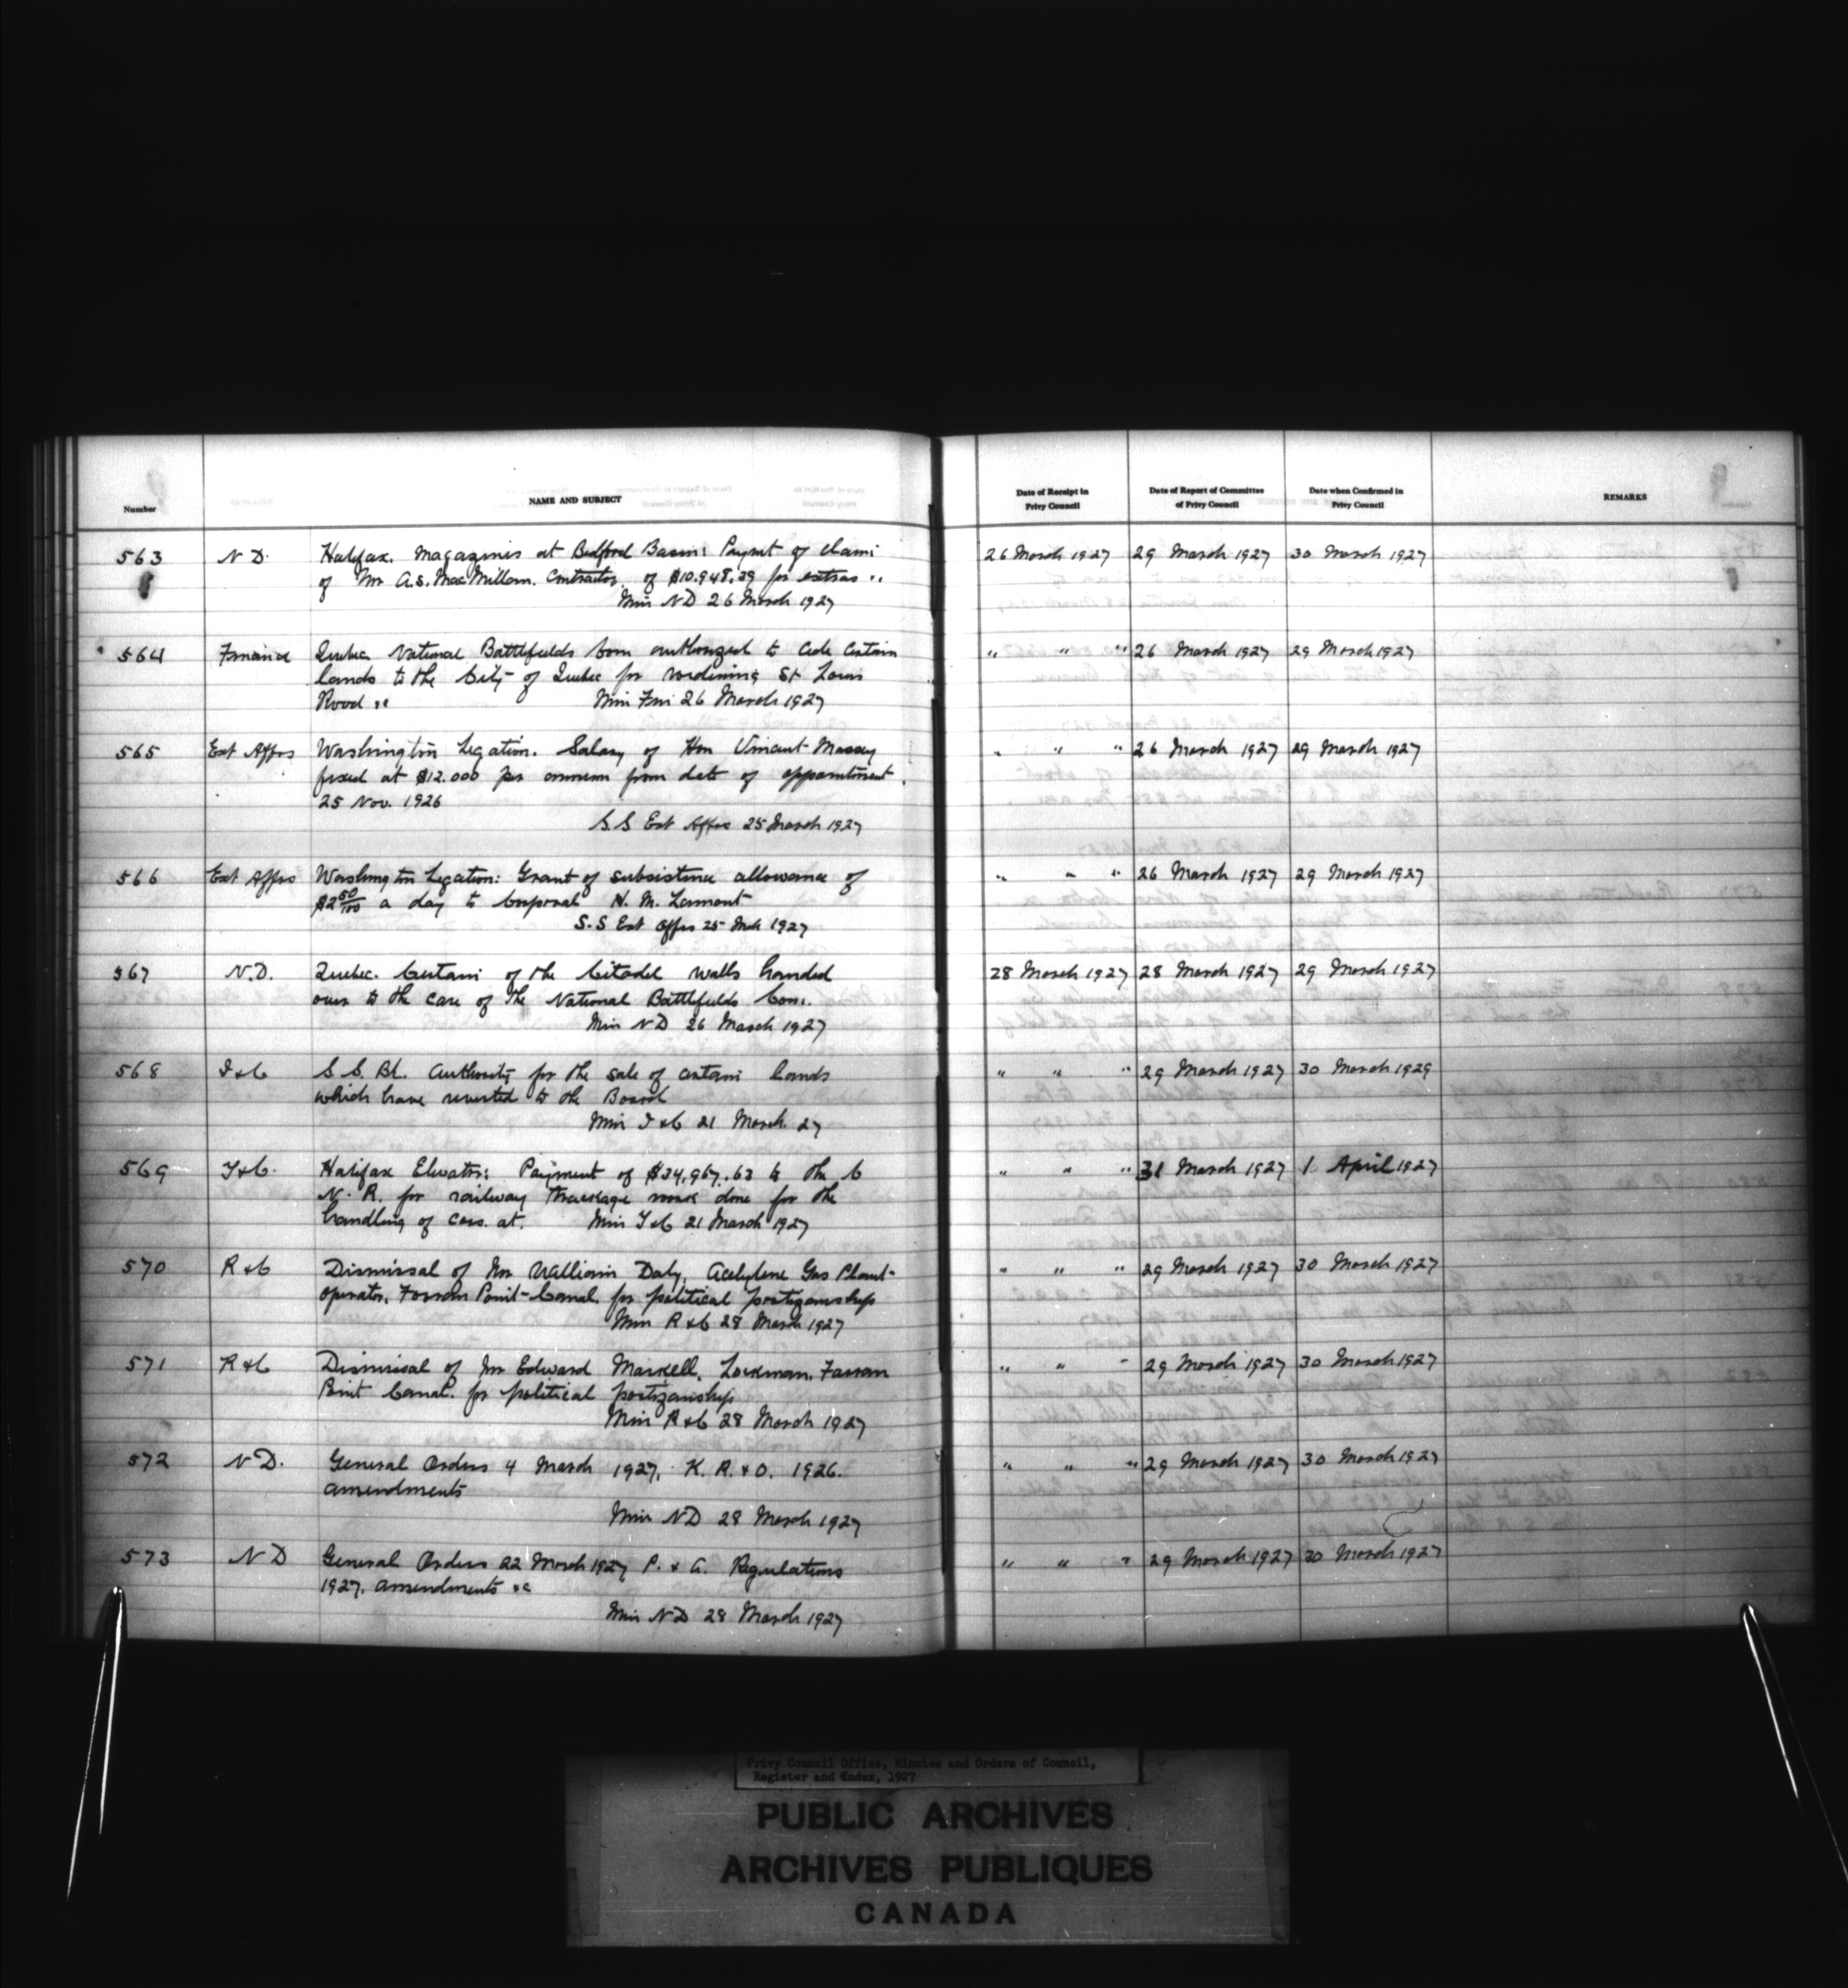 Number
NAME AND SUBJECT
Date of Receipt in Privy Council
Date of Report of Committee of Privy Council
Date when Confirmed in Privy Council
REMARKS
563 N D. Halifax. Magazines at Bedford Basin: Paymt of claim 26 March 1927 29 March 1927 30 March 1927
of Mr A.S. MacMillan. Contractor. of $10,948.39 for extras
Min ND 26 March 1927
564 Finance Quebec National Battlefields Com authorized to cede certain " " " 26 March 1927 29 March 1927
lands to the City of Quebec for widening St Louis
Road
Min Fin 26 March 1927
565 Ext Affrs Washington Legation. Salary of Hon Vincent Massey " " " 26 March 1927 29 March 1927
fixed at $12.000 per annum from date of appointment
25 Nov. 1926
S S Ext Affrs 25 March 1927
566 Ext Affrs Washington Legation: Grant of subsistence allowance of " " " 26 March 1927 29 March 1927
$2 50/100 a day to Corporal H. M. Lamont
S.S Ext Affrs 25 Mch 1927
567 N.D. Quebec. Certain of the Citadel walls handed 28 March 1927 28 March 1927 29 March 1927
over to the care of the National Battlefields Com.
Min ND 26 March 1927
568 I & C S. S. Bd. Authority for the sale of certain lands " " " 29 March 1927 30 March 1929
which have reverted to the Board
Min I & C 21 March 27
569 T & C. Halifax Elevator: Payment of $34,967.63 to the C " " " 31 March 1927 1 April 1927
N. R. for railway trackage work done for the
handling of cars. at.
Min T & C 21 March 1927
570 R & C Dismissal of Mr William Daly, Acetylene Gas Plant " " " 29 March 1927 30 March 1927
operator, Farran Point Canal. for political partizanship
Min R & C 28 March 1927
571 R & C Dismissal of Mr Edward Markell, Lockman, Farran " " " 29 March 1927 30 March 1927
Point Canal. for political partizanship
Min R & C 28 March 1927
572 N D. General Orders 4 March 1927, K. R. & O. 1926. " " " 29 March 1927 30 March 1927
amendments
Min ND 28 March 1927
573 N D General Orders 22 March 1927 P. & A. Regulations " " " 29 March 1927 30 March 1927
1927. amendments &c
Min ND 28 March 1927
Privy Council Office, Minutes and Orders of Council,
Register and Index, 1927
PUBLIC ARCHIVES
ARCHIVES PUBLIQUES
CANADA